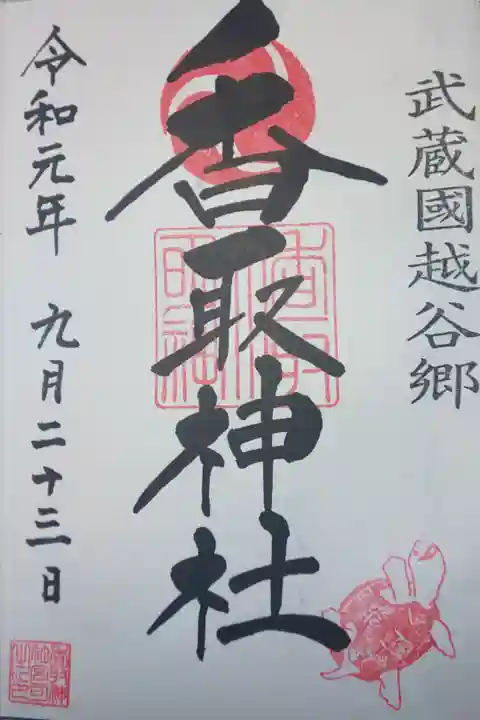 武蔵國越谷郷
香取神社
令和元年 九月二十三日